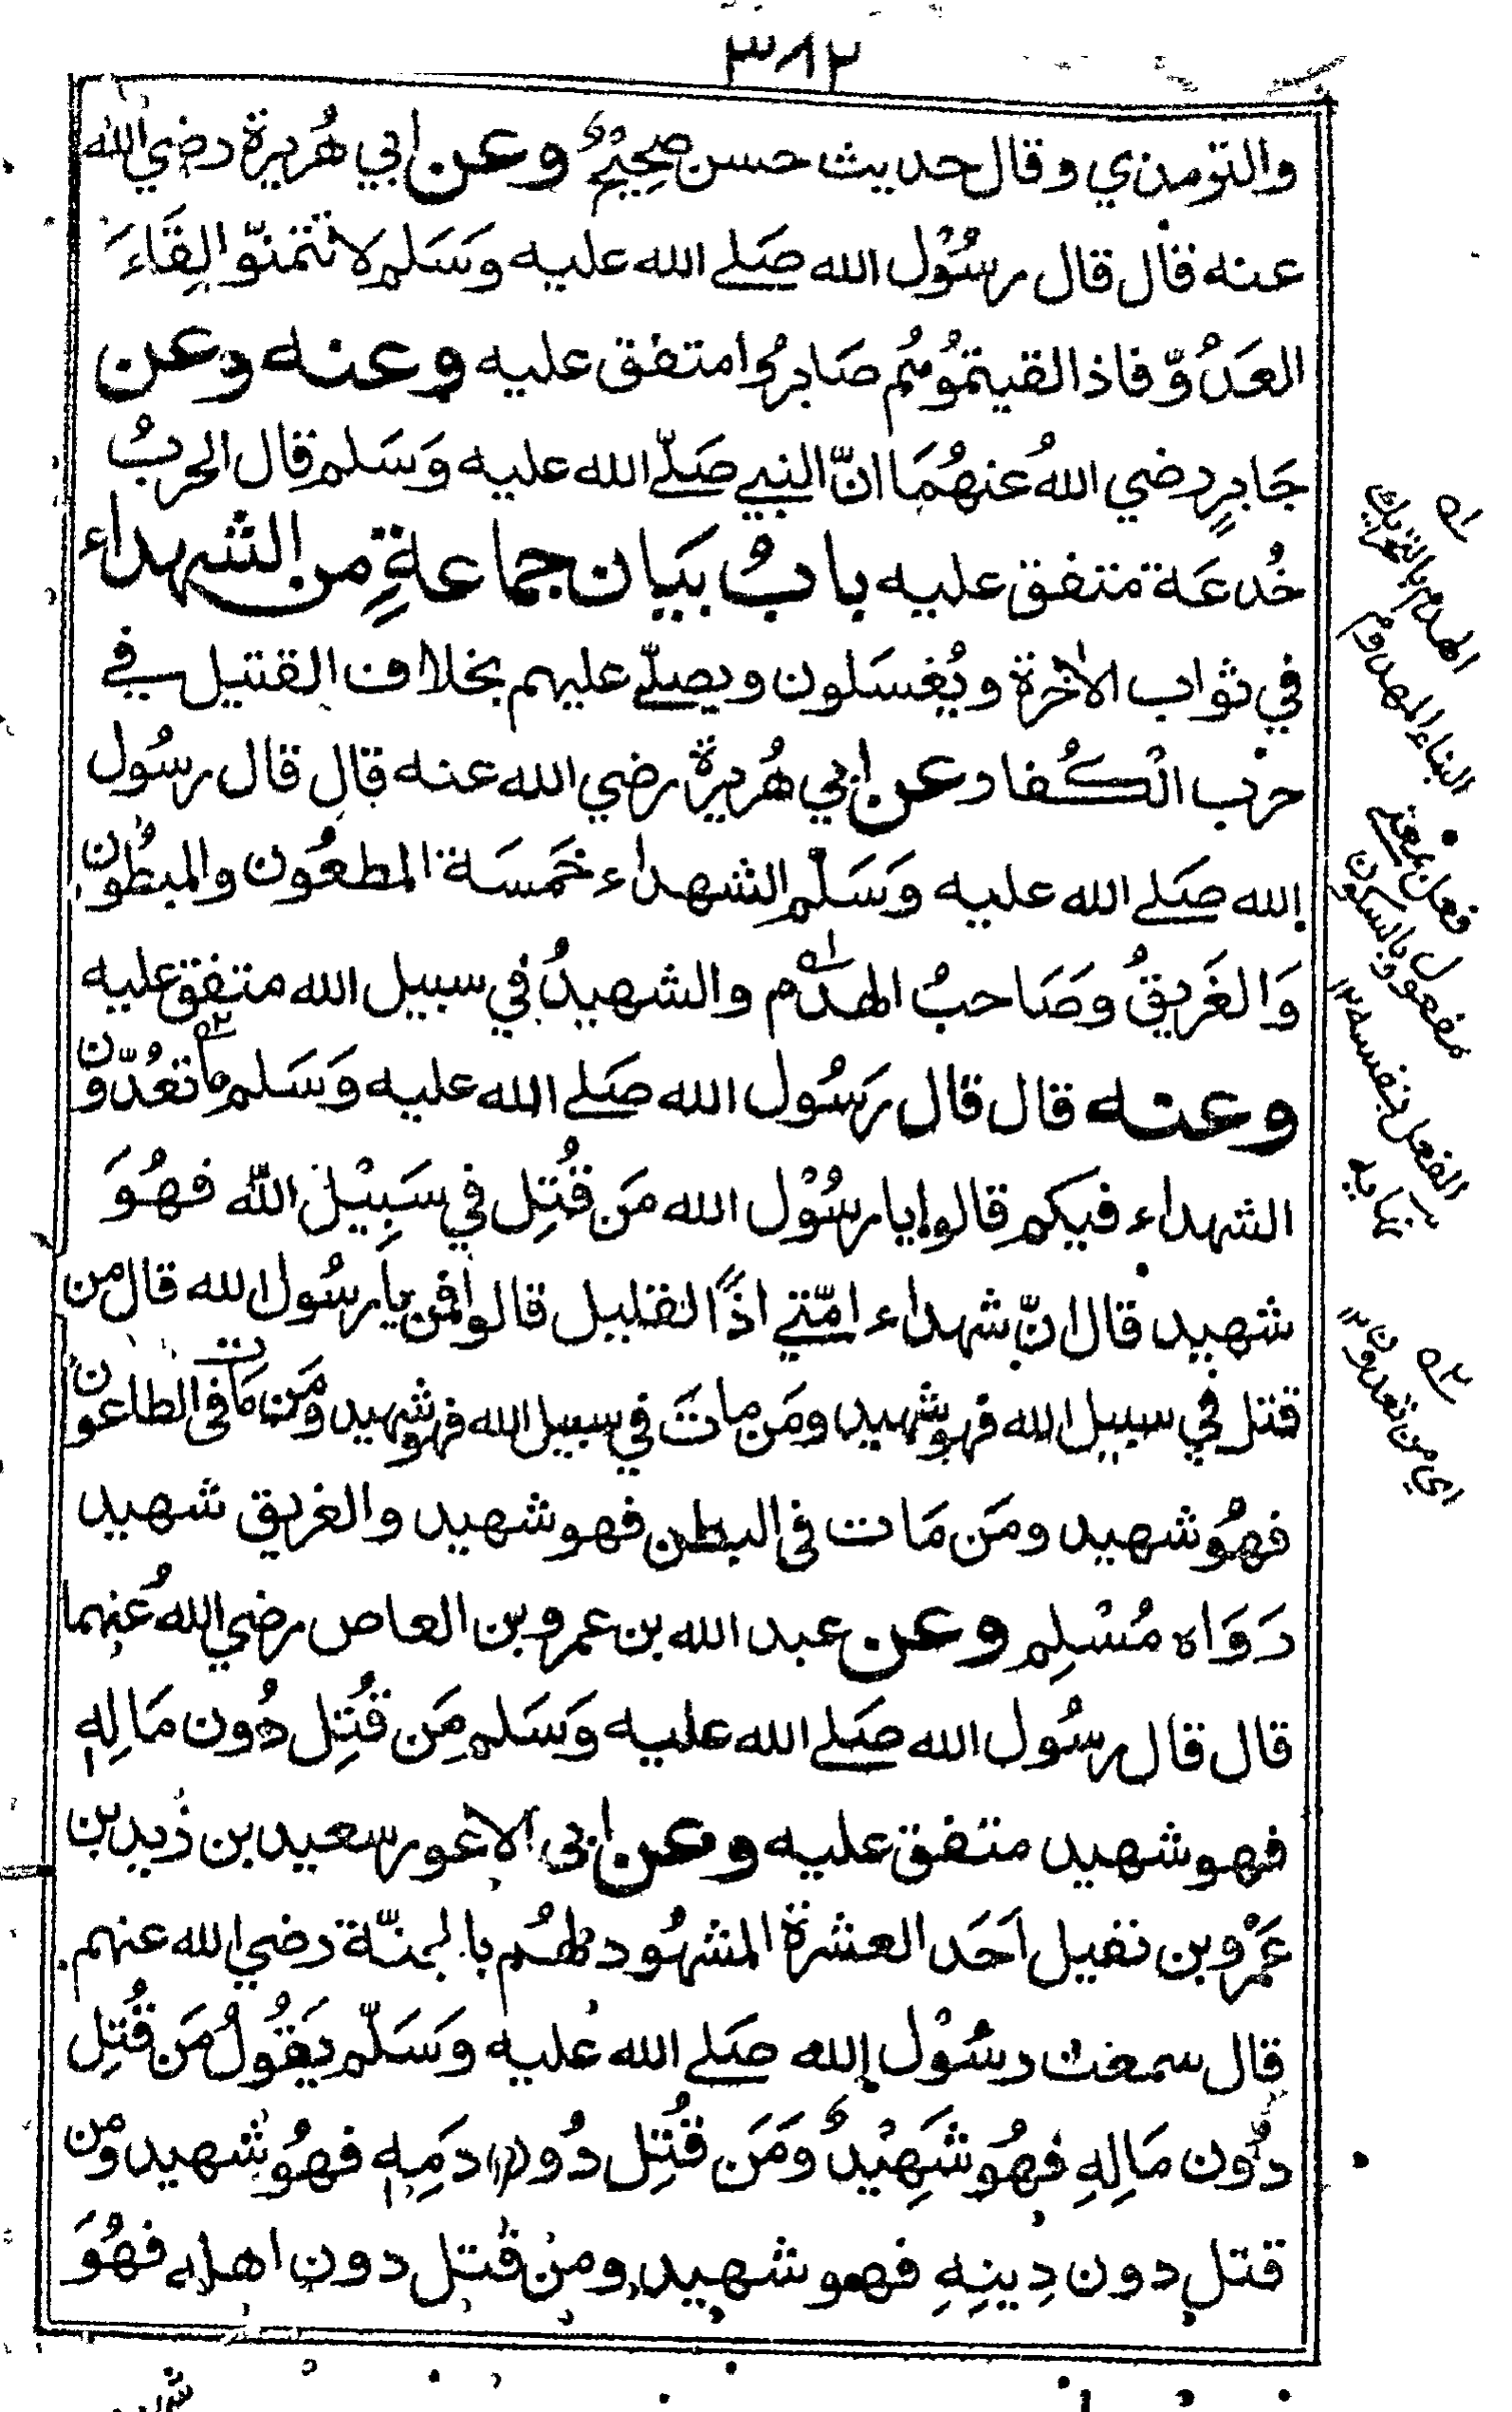 ٣٨٢
والترمذي وقال حديث حسن صحيحٌ وعن ابي هُريرة رضي الله
عنه قال قال رسُوْل الله صَلے الله عليه وَسَلم لا تتمنّوا لِقَاءَ
العَدُوّ فاذا لقيتمُوهُم صَابِرُوا متفق عليه وعنه وعن
جَابرٍ رضي اللهُ عنهُمَا انّ النبي صَلّے الله عليه وَسَلم قال الحربُ
خُدعَة متفق عليه بابُ بَيَان جماعةٍ من الشهداء
في ثواب الاٰخرة ويُغسَلون ويصلّے عليهم بخلاف القتيل في
حرب الْكُفار عن ابي هُريرة رضي الله عنه قال قال رسُول
الله صَلے الله عليه وَسَلّم الشهداء خمسَة المطعُون والمبطُون
وَالغَريقُ وصَاحبُ الهدم ٥١ والشهيدُ في سبيل الله متفق عليه
وعنه قال قال رَسُول الله صَلے الله عليه وَسَلم ما ٥٢ تعُدّون
الشهداء فيكم قالوا يا رسُوْل الله مَن قُتِل في سَبِيْل اللّٰه فهُوَ
شهيد قال انّ شهداء امّتے اذًا لقليل قالوا فمن يا رسُول الله قال من
قتل في سبيل الله فهو شهيد ومَن ماتَ في سبيل الله فهو شهيد ومَن مَات في الطاعون
فهُو شهيد ومَن مَات في البطن فهو شهيد والغريق شهيد
رَوَاه مُسْلِم وعن عبد الله بن عمرو بن العاص رضي اللهُ عنهما
قال قال رسُول الله صَلے الله عليه وَسَلم مَن قُتِل دُون مَالِهٖ
فهو شهيد متفق عليه وعن ابي الاعور سعيد بن زيد بن
عَمْرو بن نفيل اَحَد العشرة المشهُود لهُم بالجنّة رضي الله عنهم
قال سمعت رسُوْل الله صَلے الله عليه وَسَلّم يَقُولُ مَن قُتِل
دُون مَالِهٖ فهُو شَهِيْدٌ وَمَن قُتِل دُون دَمِهٖ فهُو شهيد ومن
قتل دون دِينِهِ فهو شهيد ومن قتل دون اهله فهُوَ
٥١
الهدم بالتحريك
البناء المهدوم
فعل بمعنے
مفعول وبالسكون
الفعل نفسه ١٢
نهايه
٥٢
اي من تعدون ١٢